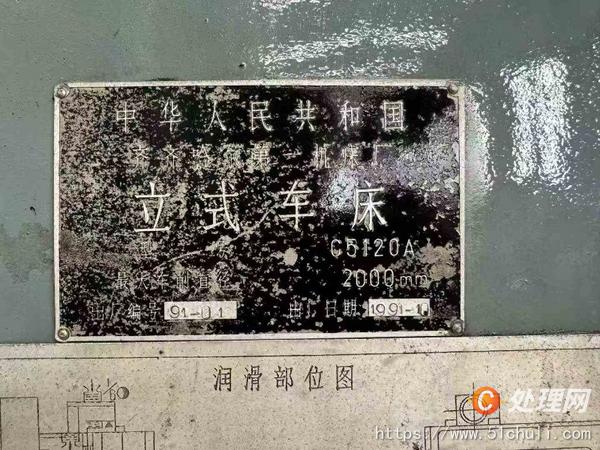 中华人民共和国
齐齐哈尔第一机床厂
立式车床
型 C5120A
最大车削直径 2000mm
出厂编号 91-01 出厂日期 1991-1
润滑部位图
C 处理网
https://www.51chuli.com